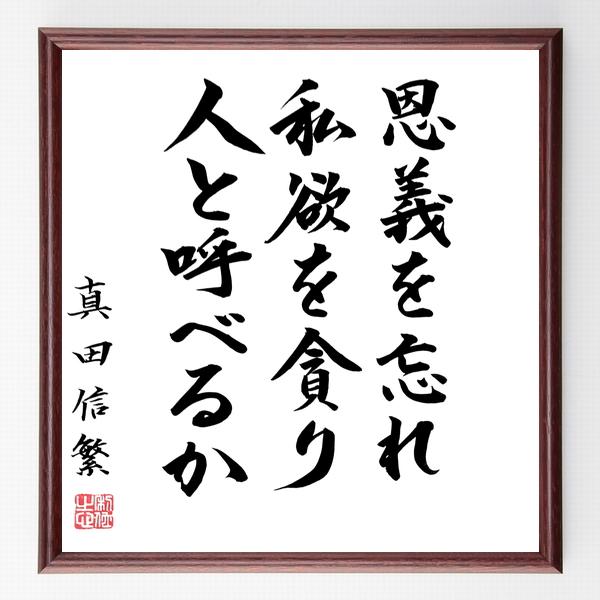 恩義を忘れ
私欲を貪り
人と呼べるか
真田信繁